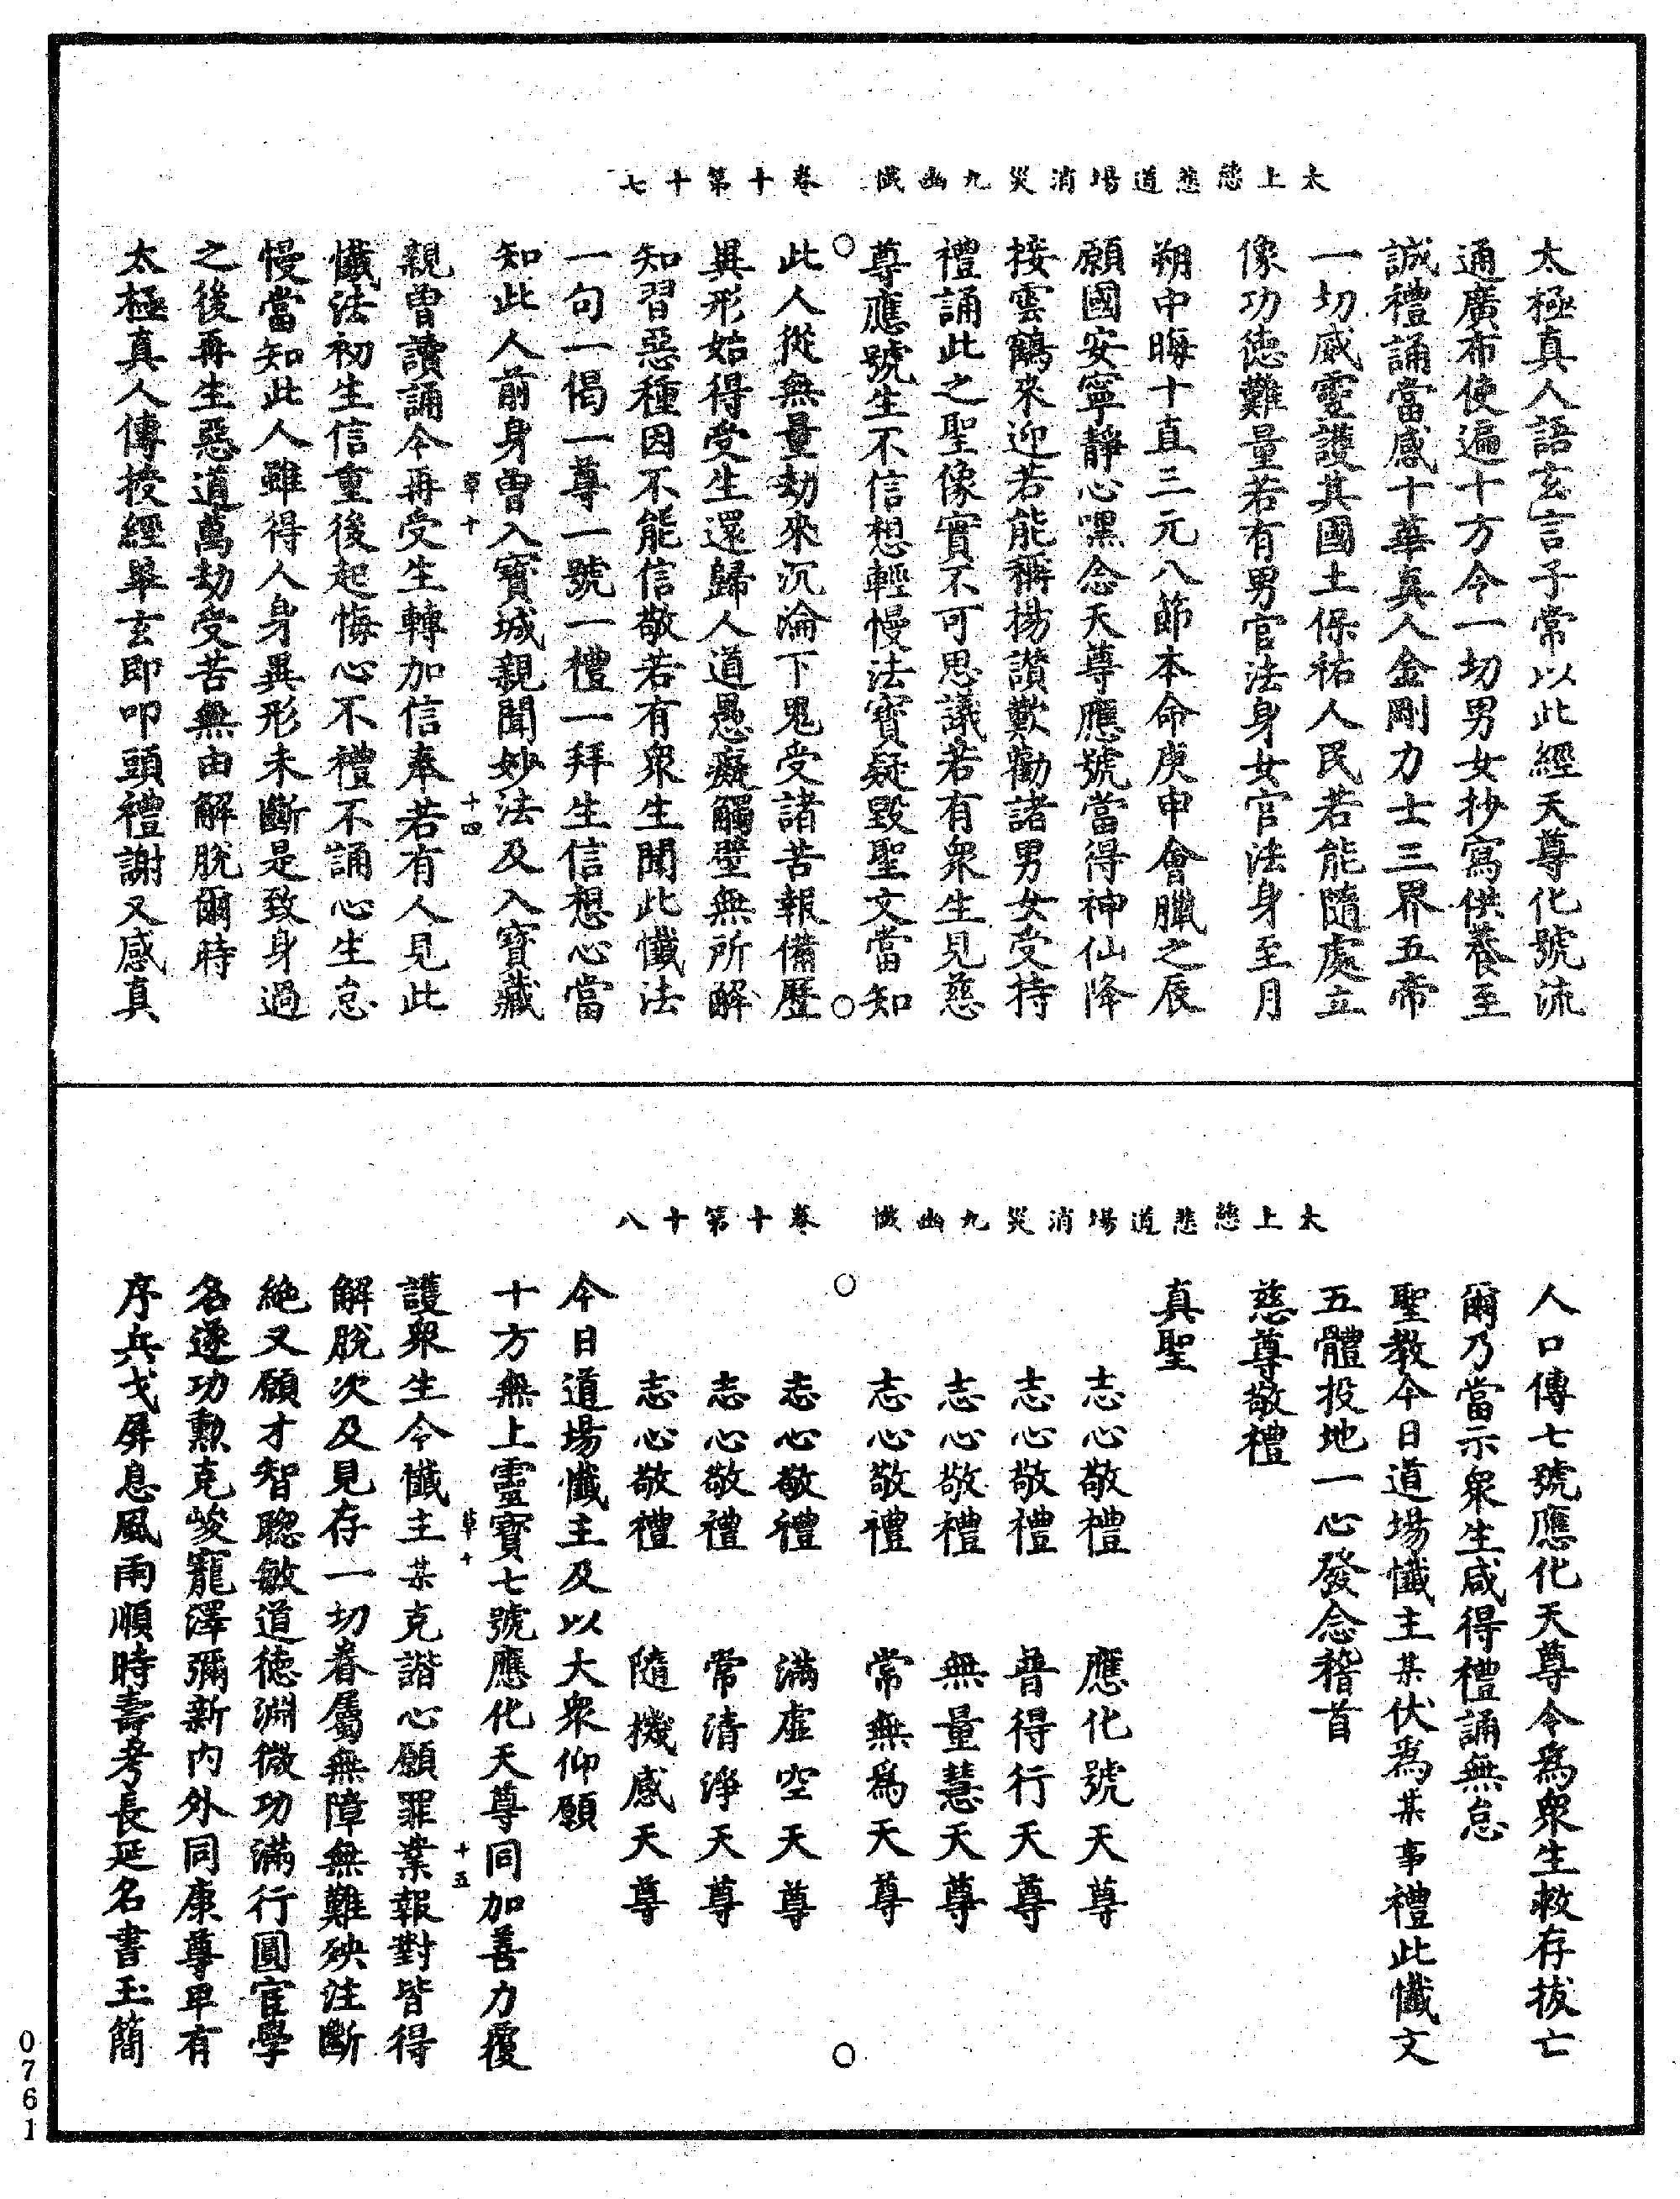 太上慈悲道場消災九幽懺　卷十第十七
太極真人語玄言子常以此經天尊化號流
通廣布使遍十方令一切男女抄寫供養至
誠禮誦當感十華真人金剛力士三界五帝
一切威靈護其國土保祐人民若能隨處立
像功德難量若有男官法身女官法身至月
朔中晦十直三元八節本命庚申會臘之辰
願國安寧靜心嘿念天尊應號當得神仙降
接雲鶴來迎若能稱揚讚歎勸諸男女受持
禮誦此之聖像實不可思議若有衆生見慈
尊應號生不信想輕慢法寶疑毀聖文當知
此人從無量劫來沉淪下鬼受諸苦報備歷
異形始得受生還歸人道愚癡觸壁無所解
知習惡種因不能信敬若有衆生聞此懺法
一句一偈一尊一號一禮一拜生信想心當
知此人前身曾入寶城親聞妙法及入寶藏
草十　十四
親曾讀誦今再受生轉加信奉若有人見此
懺法初生信重後起悔心不禮不誦心生怠
慢當知此人雖得人身異形未斷是致身過
之後再生惡道萬劫受苦無由解脫爾時
太極真人傳授經畢玄即叩頭禮謝又感真
太上慈悲道場消災九幽懺　卷十第十八
人口傳七號應化天尊令爲衆生救存拔亡
爾乃當示衆生咸得禮誦無怠
聖教今日道場懺主某伏爲某事禮此懺文
五體投地一心發念稽首
慈尊敬禮
真聖
志心敬禮　應化號天尊
志心敬禮　普得行天尊
志心敬禮　無量慧天尊
志心敬禮　常無爲天尊
志心敬禮　滿虛空天尊
志心敬禮　常清淨天尊
志心敬禮　隨機感天尊
今日道場懺主及以大衆仰願
十方無上靈寶七號應化天尊同加善力覆
草十　十五
護衆生令懺主某克諧心願罪業報對皆得
解脫次及見存一切眷屬無障無難殃注斷
絶又願才智聰敏道德淵微功滿行圓官學
名遂功勲克峻寵澤彌新内外同康尊卑有
序兵戈屏息風雨順時壽考長延名書玉簡
0761